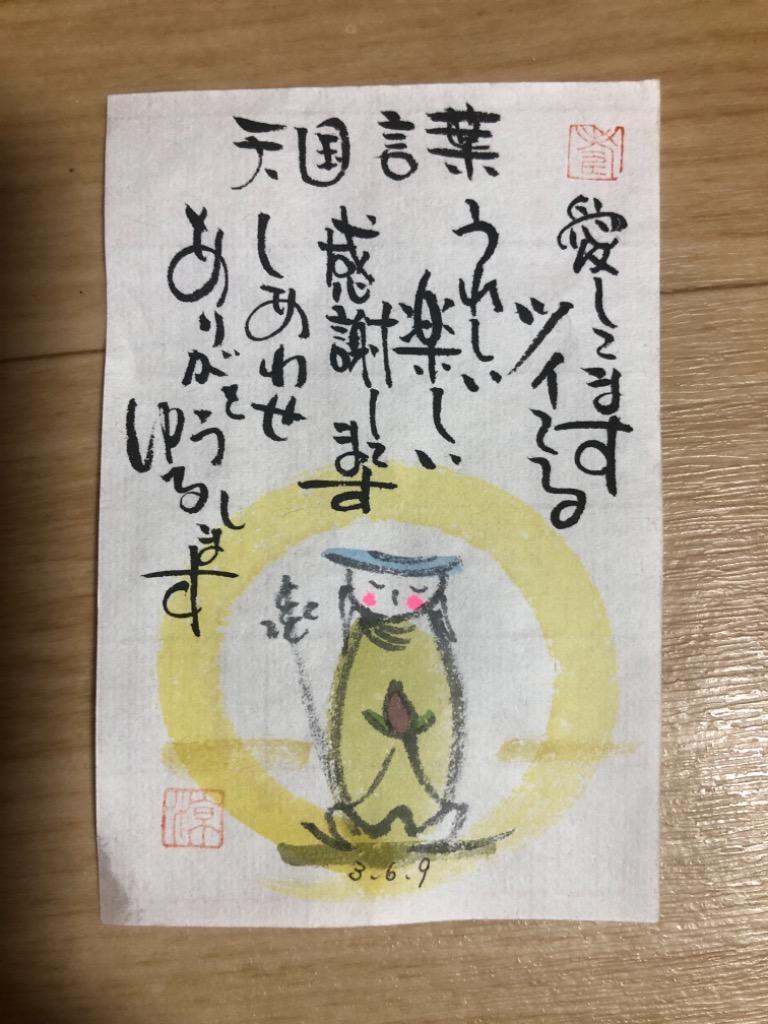 天国言葉
愛してます
ツイてる
うれしい
楽しい
感謝してます
しあわせ
ありがとう
ゆるします
3.6.9